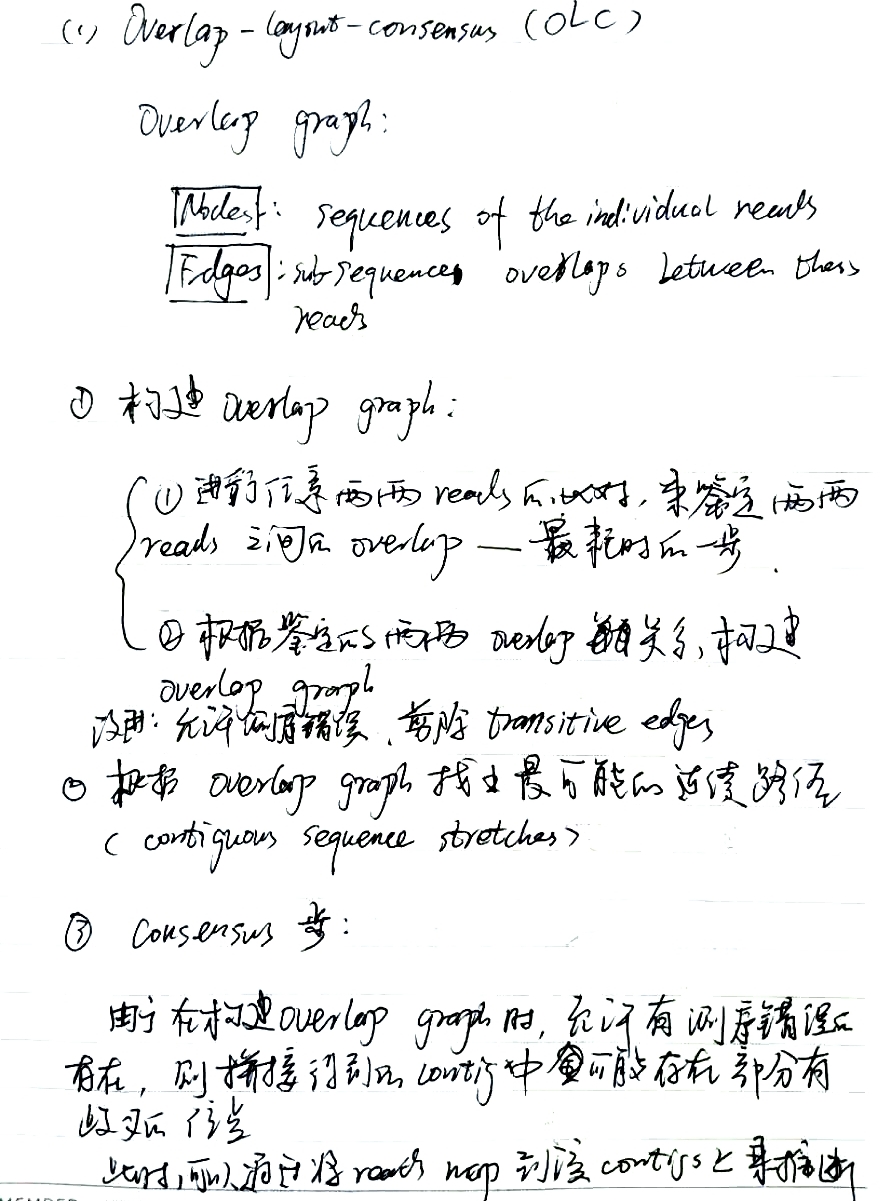 (1) Overlap-layout-consensus (OLC)
Overlap graph:
Nodes: sequences of the individual reads
Edges: subsequences overlaps between these
reads
① 构建 overlap graph:
① 进行任意两两 reads 的比对, 来鉴定两两
reads 之间的 overlap — 最耗时的一步.
② 根据鉴定的两两 overlap 关系, 构建
overlap graph
说明: 允许测序错误、剪除 transitive edges
② 根据 overlap graph 找出最可能的连续路径
( contiguous sequence stretches )
③ Consensus 步:
由于在构建 overlap graph 时, 允许有测序错误的
存在, 则拼接得到的 contig 中可能存在部分有
歧义的位点
此时, 可以通过将 reads map 到该 contigs 上来推断